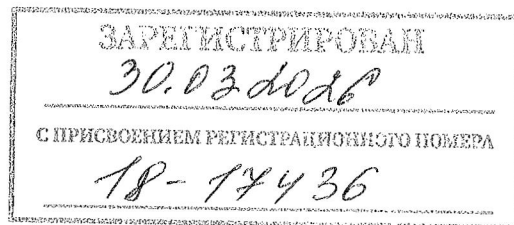 ЗАРЕГИСТРИРОВАН
30.03.2026
С ПРИСВОЕНИЕМ РЕГИСТРАЦИОННОГО НОМЕРА
18-17436